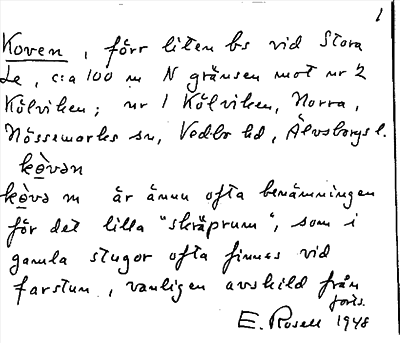 1
Koven, förr liten bs vid Stora
Le, c:a 100 m N gränsen mot nr 2
Kölviken; nr 1 Kölviken, Norra,
Nössemarks sn, Vedbo hd, Älvsborgs l.
kè̱vən
kè̱və m är ännu ofta benämningen
för det lilla "skräprum", som i
gamla stugor ofta finnes vid
farstun, vanligen avskild från
forts.
E. Rosell 1948